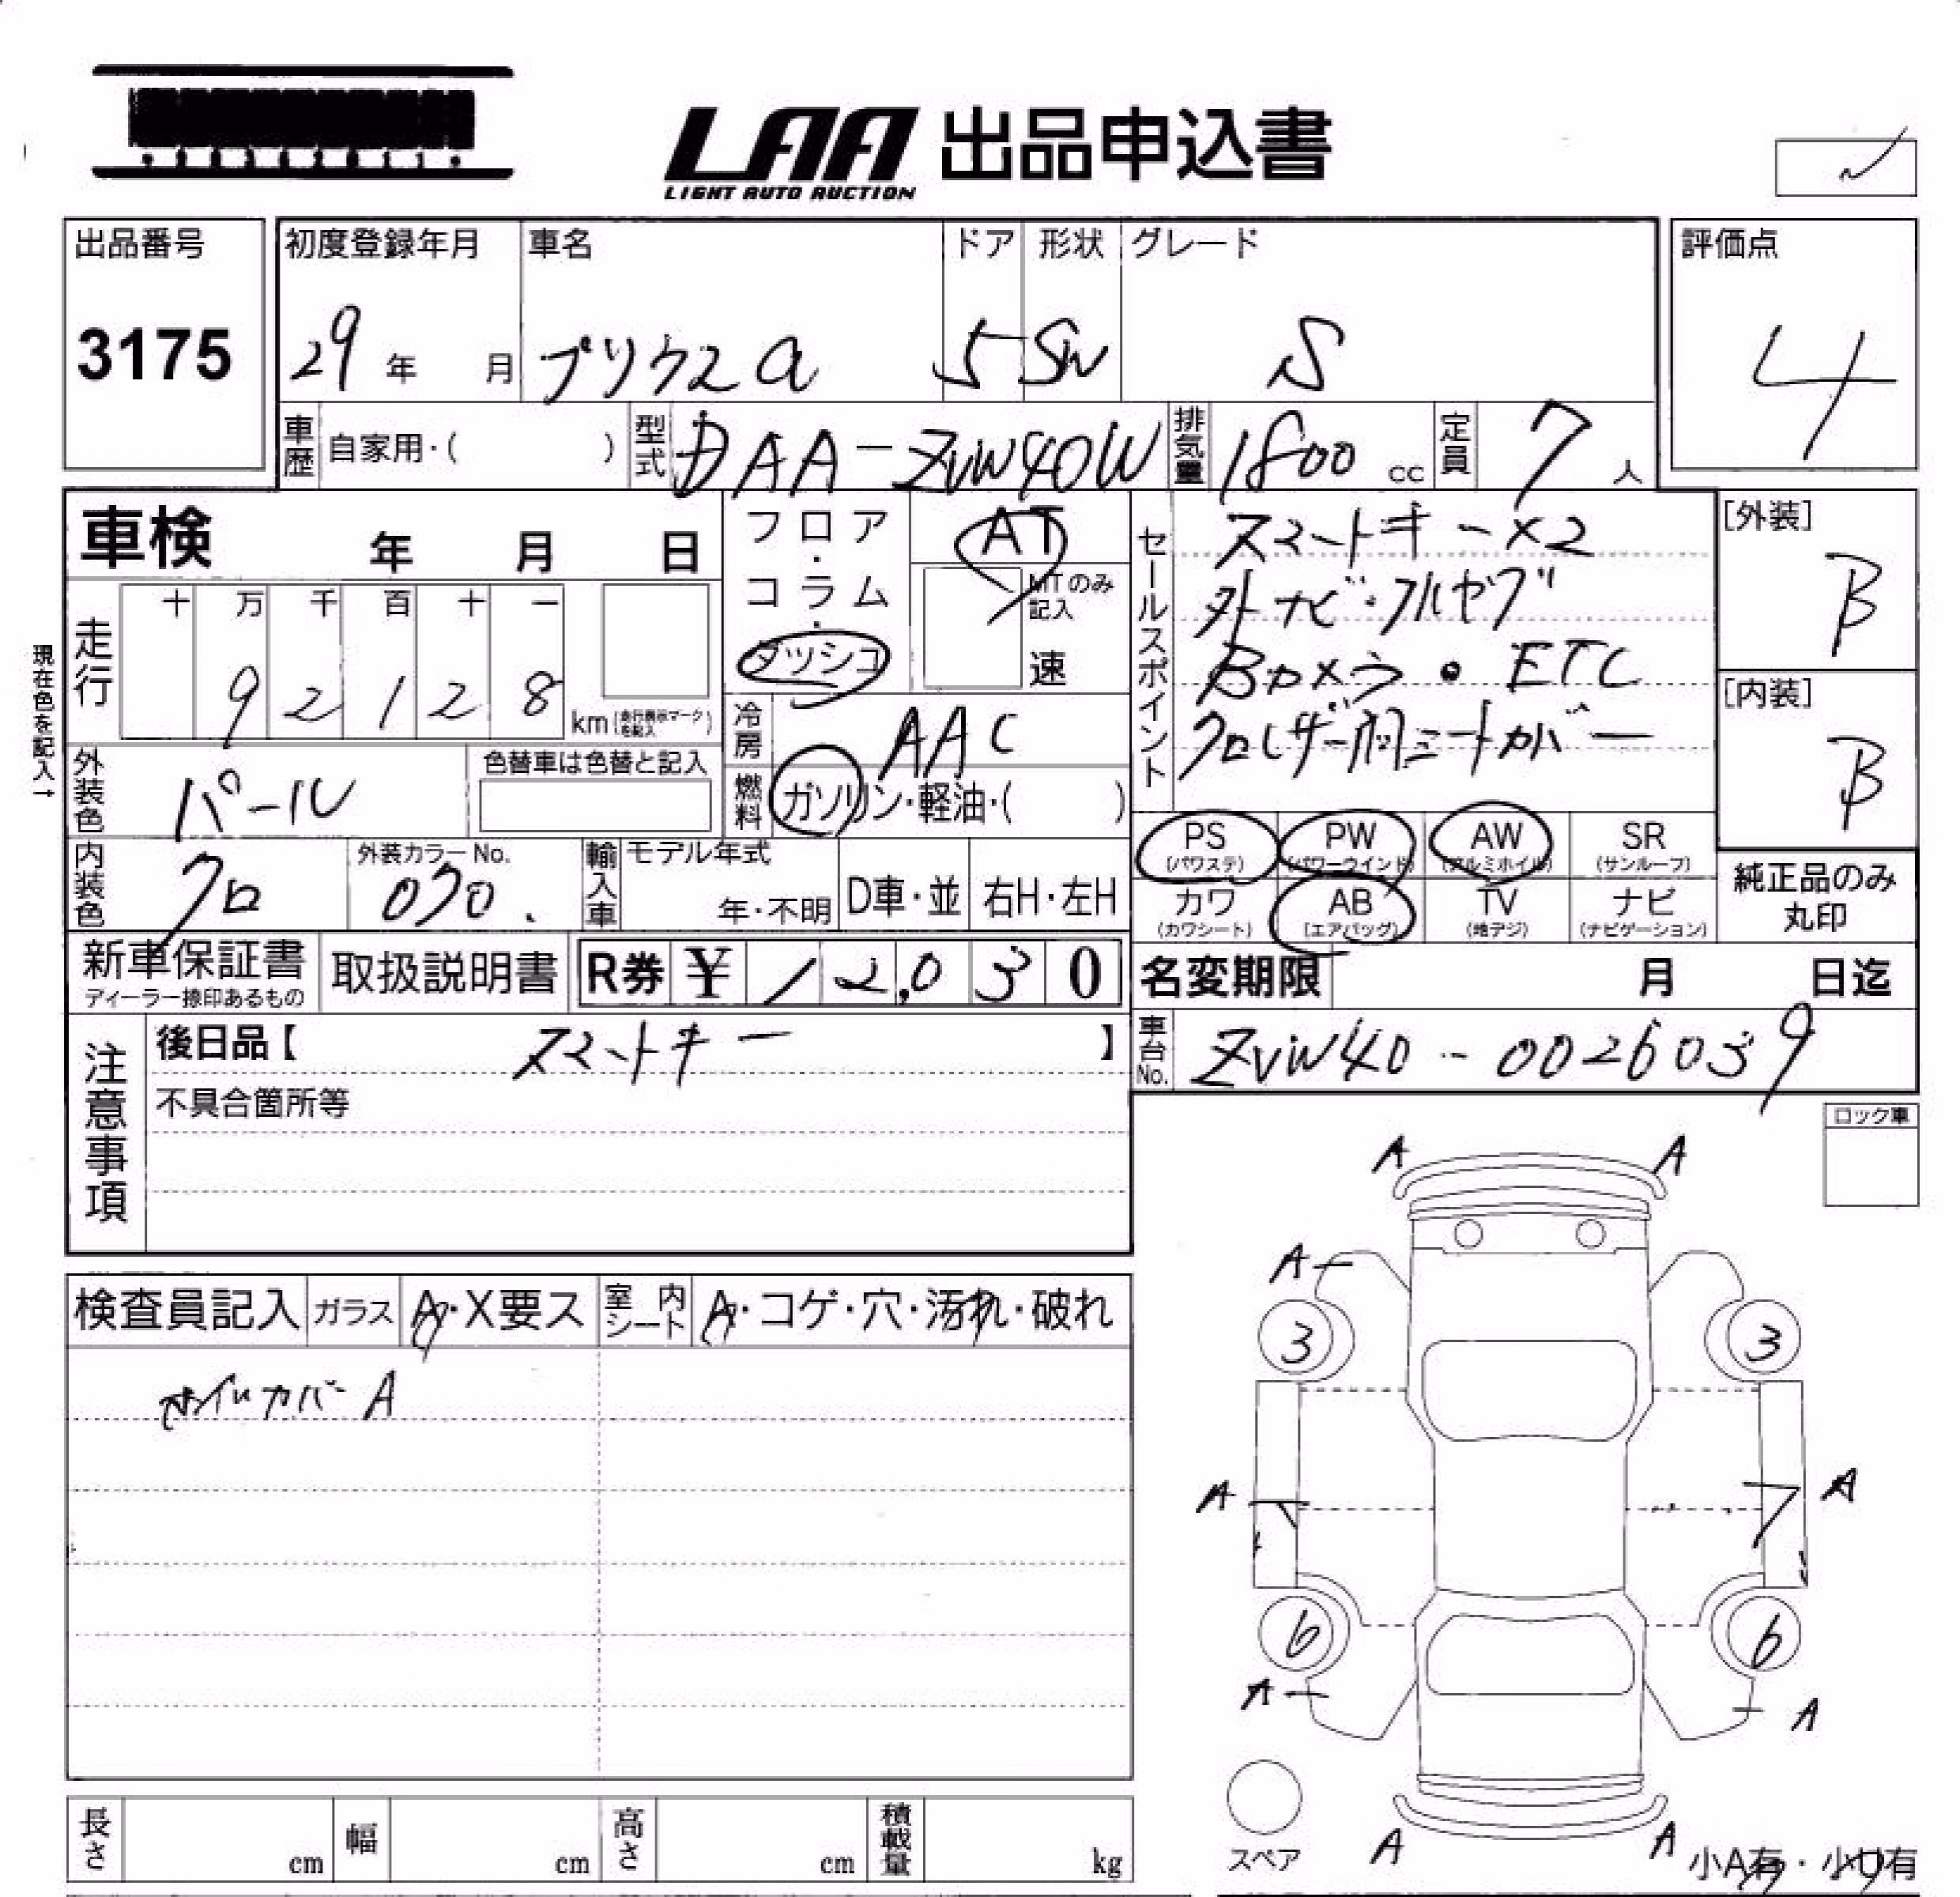 LAA 出品申込書
LIGHT AUTO AUCTION
出品番号
3175
初度登録年月
29年 月
車名
プリウスα
ドア
5
形状
SW
グレード
S
評価点
4
車歴 自家用・( )
型式 DAA-ZVW40W
排気量 1800 cc
定員 7 人
車検 年 月 日
フロア・コラム・ダッシュ
AT
MTのみ記入
速
セールスポイント
スマートキー×2
外ナビ・フルセグ
Bカメラ・ETC
クロレザー調シートカバー
[外装]
B
[内装]
B
現在色を記入→
走行
十 万 千 百 十 一
9 2 1 2 8
km(走行表示マークを記入)
冷房 AAC
外装色 パール
色替車は色替と記入
燃料 ガソリン・軽油・( )
内装色 クロ
外装カラーNo.
070.
輸入車
モデル年式
年・不明
D車・並
右H・左H
PS (パワステ)
PW (パワーウインド)
AW (アルミホイル)
SR (サンルーフ)
カワ (カワシート)
AB (エアバッグ)
TV (地デジ)
ナビ (ナビゲーション)
純正品のみ丸印
新車保証書
ディーラー捺印あるもの
取扱説明書
R券 ¥ 12,030
名変期限 月 日迄
注意事項
後日品【 スマートキー 】
不具合箇所等
車台No. ZVW40-0026039
ロック車
検査員記入
ガラス A・X要ス
室内シート A・コゲ・穴・汚れ・破れ
ホイルカバーA
A A
A
3 3
A A
6 6
A A
スペア
A A
小A有・小U有
長さ cm
幅 cm
高さ cm
積載量 kg